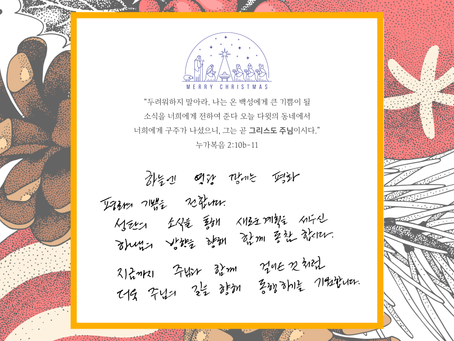 MERRY CHRISTMAS
“두려워하지 말아라. 나는 온 백성에게 큰 기쁨이 될
소식을 너희에게 전하여 준다 오늘 다윗의 동네에서
너희에게 구주가 나셨으니, 그는 곧 그리스도 주님이시다.”
누가복음 2:10b-11
하늘엔 영광 땅에는 평화
평화의 기쁨을 전합니다.
성탄의 소식을 통해 새로운 계획을 세우신
하나님의 방향을 향해 함께 동참 합니다.
지금까지 주님과 함께 걸어온 것 처럼
더욱 주님의 길을 향해 동행하기를 기원합니다.